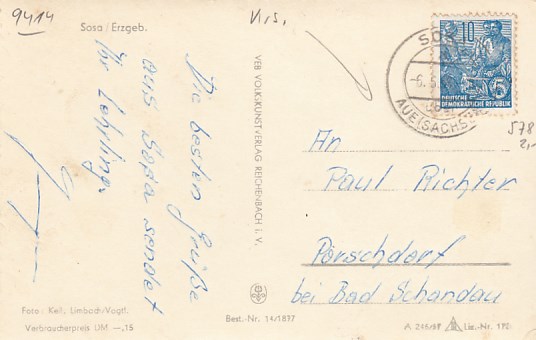 9414
Vis.
Sosa / Erzgeb.
Die besten Grüße
aus Sosa sendet
Ihr Lehrling.
VEB VOLKSKUNSTVERLAG REICHENBACH I. V.
SOSA
AUE (SACHS)
10
5
DEUTSCHE
DEMOKRATISCHE REPUBLIK
578
2,-
An
Paul Richter
Porschdorf
bei Bad Schandau
Foto: Keil, Limbach/Vogtl.
Verbraucherpreis DM —,15
Best.-Nr. 14/1877
Liz.-Nr.